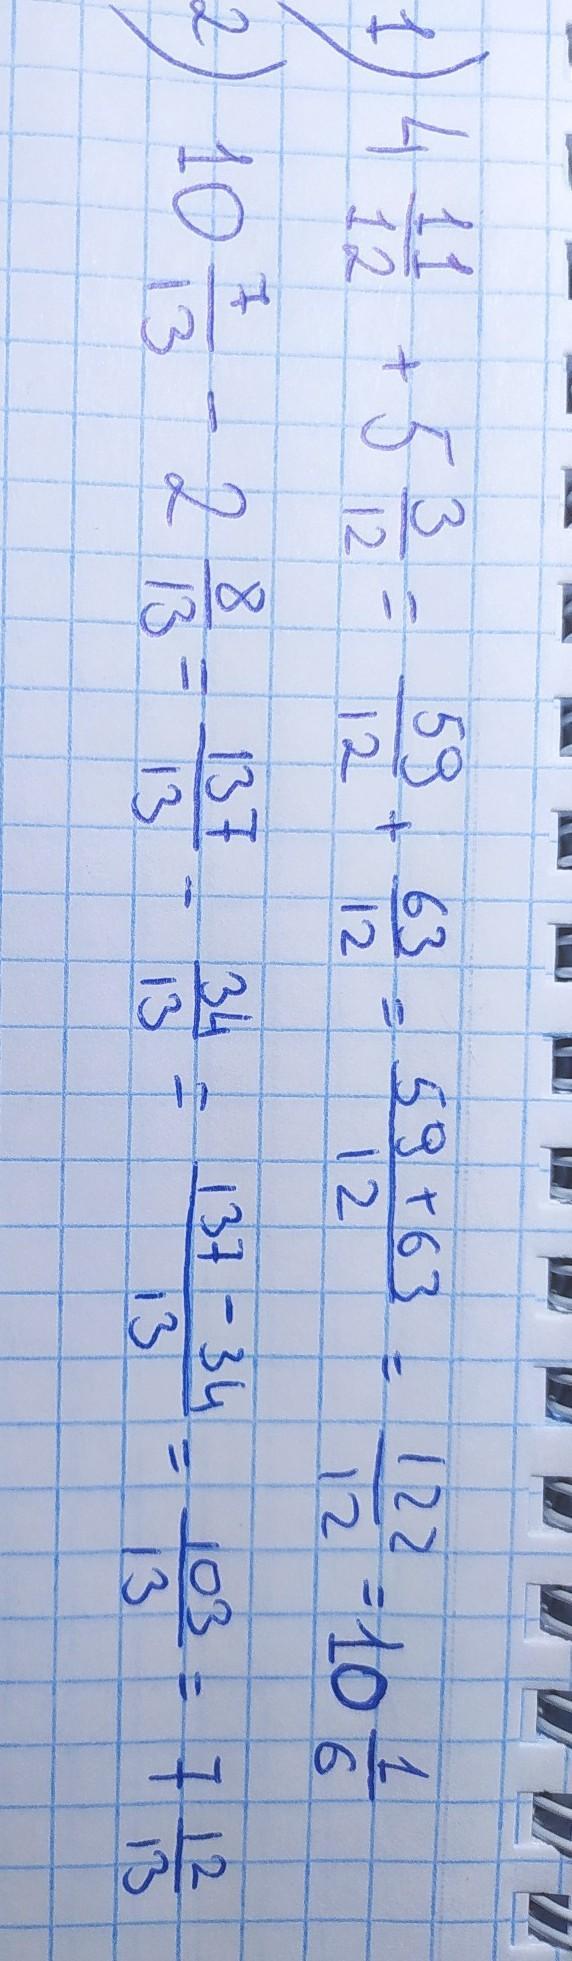 1) 4 11/12 + 5 3/12 = 59/12 + 63/12 = 59+63/12 = 122/12 = 10 1/6
2) 10 7/13 - 2 8/13 = 137/13 - 34/13 = 137-34/13 = 103/13 = 7 12/13